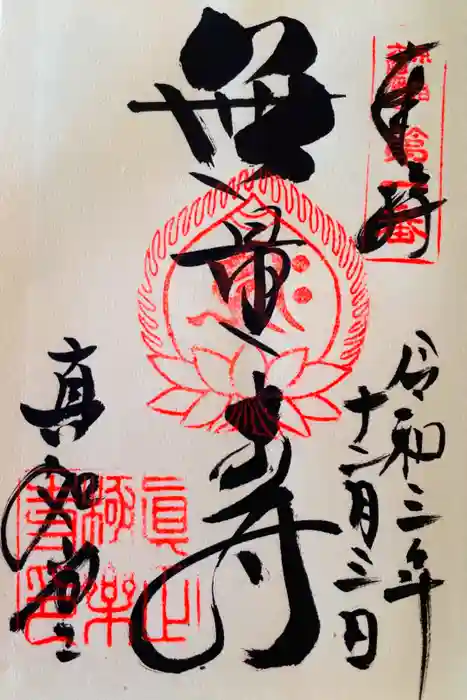 奉拝
令和三年
十二月三日
無量寿
真如堂
眞正
極樂
寺印